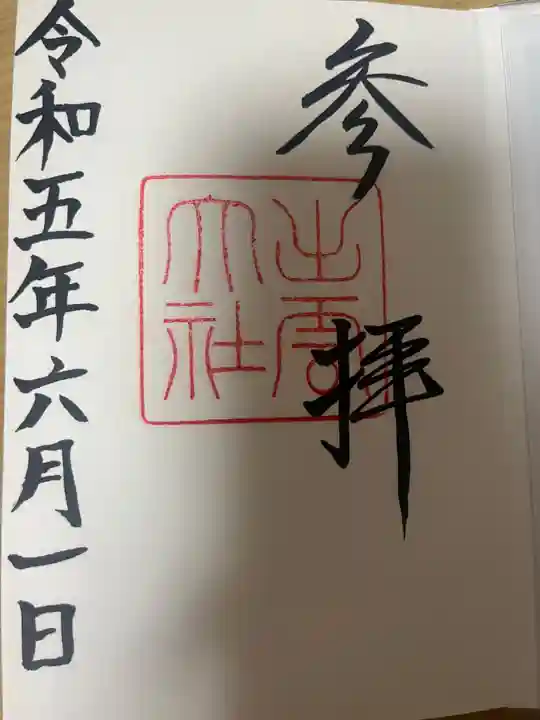 参拝
出雲
大社
令和五年六月一日